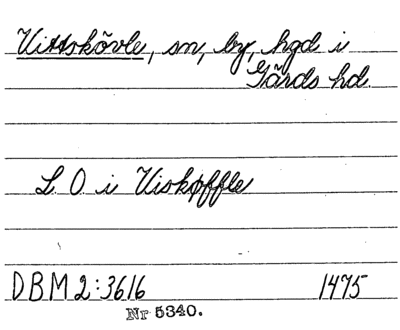 Vittskövle, sn, by, hgd i
Gärds hd.
L. O. i Viskøffle
DBM 2:3616 1475
Nr 5340.